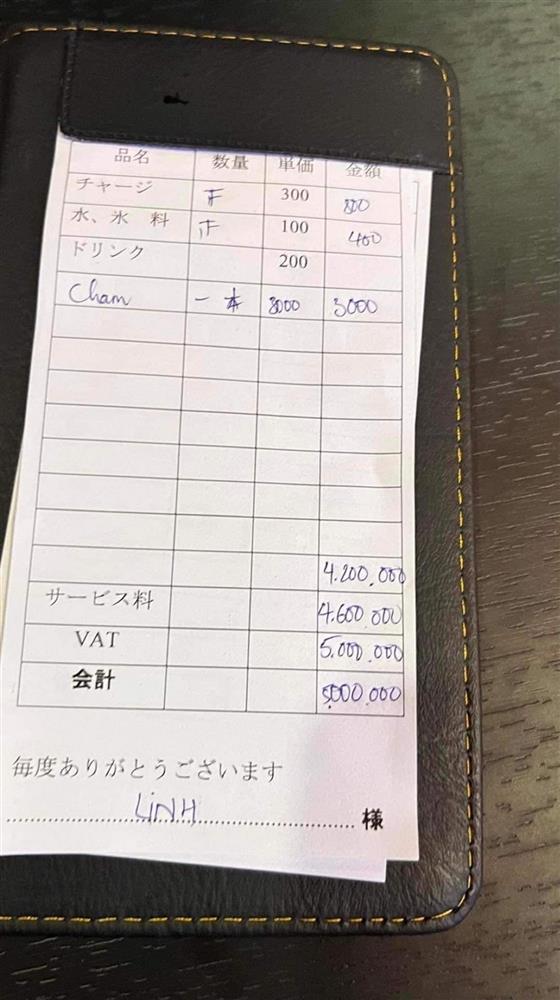 品名 数量 単価 金額
チャージ 300 800
水、氷 料 100 400
ドリンク 200
Cham 一本 3000 3000
4.200.000
サービス料 4.600.000
VAT 5.000.000
会計 5.000.000
毎度ありがとうございます
LINH 様